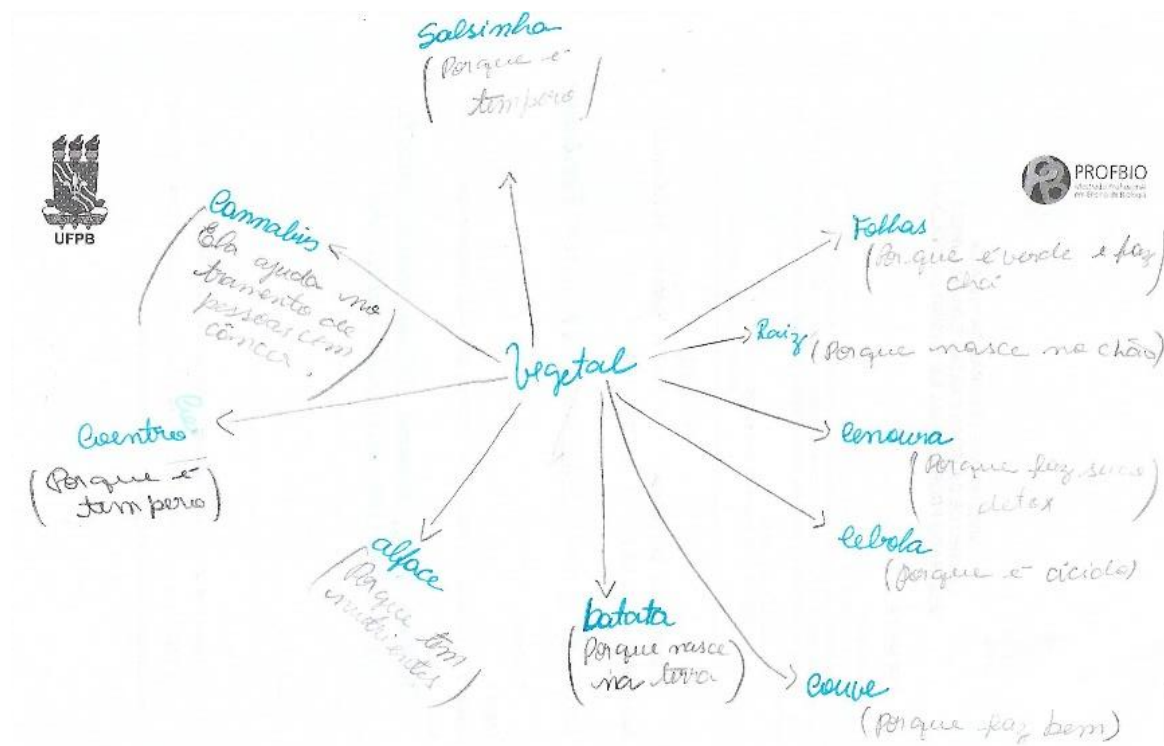 Salsinha
(Porque é
tempero)
UFPB
PROFBIO
Mestrado Profissional
em Ensino de Biologia
Cannabis
(Ela ajuda no
tramento de
pessoas com
câncer.)
Folhas
(Por que é verde e faz
chá)
Raiz (Porque nasce no chão)
Vegetal
Coentro
(Porque é
tempero)
Cenoura
(Porque faz suco
detox)
Cebola
(porque é ácida)
alface
(Porque tem
nutrientes)
batata
(Porque nasce
na terra)
Couve
(porque faz bem)